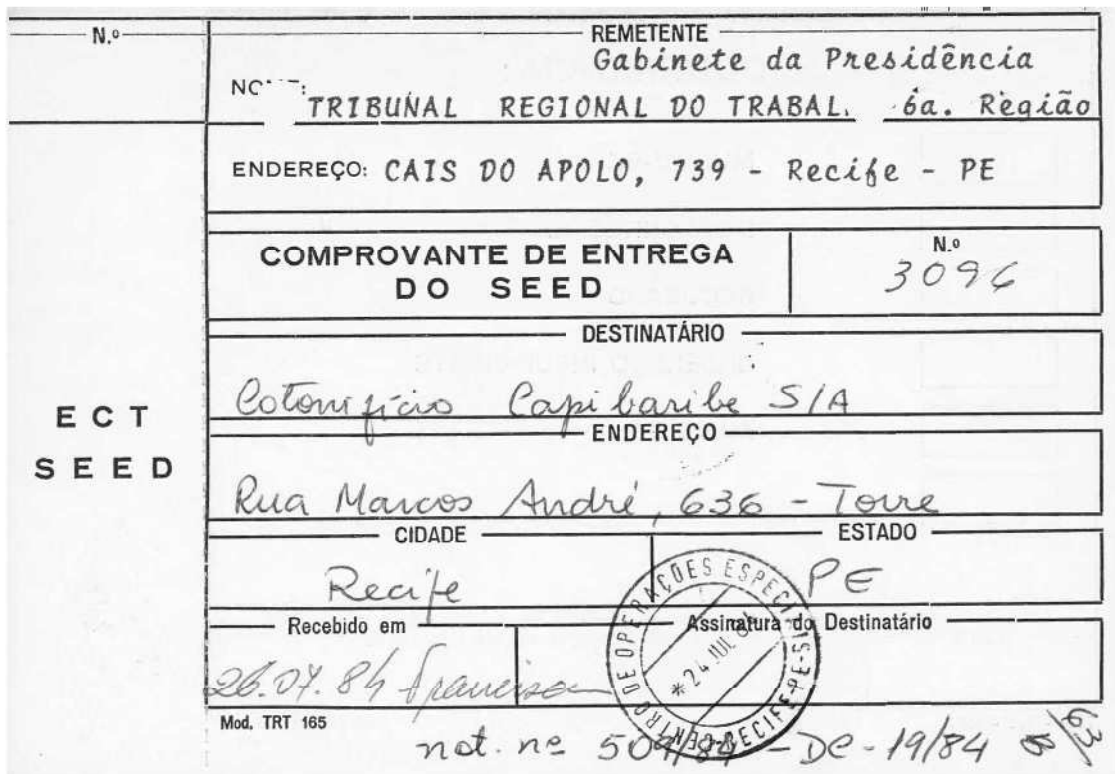 N.º
REMETENTE
Gabinete da Presidência
TRIBUNAL REGIONAL DO TRABAL. 6a. Região
ENDEREÇO: CAIS DO APOLO, 739 - Recife - PE
COMPROVANTE DE ENTREGA
DO SEED
N.º
3096
DESTINATÁRIO
Cotonifício Capibaribe S/A
ENDEREÇO
Rua Marcos André, 636 - Torre
ECT
SEED
CIDADE
ESTADO
Recife
PE
Recebido em
Assinatura do Destinatário
26.07.84
CENTRO DE OPERAÇÕES ESPECIAIS-RECIFE-PE-
*24 JUL 84
Mod. TRT 165
not. nº 509/84 - DC - 19/84
63